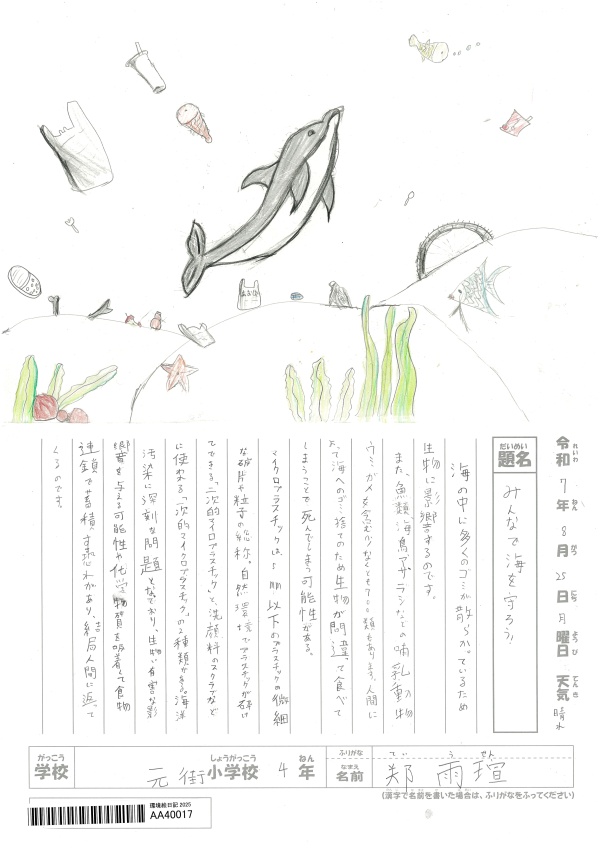 令和7年8月25日月曜日 天気 晴れ
れいわ ねん がつ にち ようび てんき
だいめい
題名
みんなで海を守ろう!
海の中に多くのゴミが散らかっているため
生物に影響するのです。
また、魚類、海鳥、アザラシなどの哺乳動物、
ウミガメを含む少なくとも700類もあります。人間に
よって海へのゴミ捨てのため生物が間違って食べて
しまうことで死んでしまう可能性がある。
マイクロプラスチックは、5mm以下のプラスチックの微細
な破片や粒子の総称。自然環境でプラスチックが砕け
てできる「二次的マイロプラスチック」と、洗顔料のスクラブなど
に使われる「一次的マイクロプラスチック」の2種類がある。海洋
汚染に深刻な問題となっており、生物に有害な影
響を与える可能性や化学物質を吸着して食物
連鎖で蓄積す恐れがあり、結局人間に返って
くるのです。
がっこう しょうがっこう ねん
学校 元街小学校 4年
ふりがな ていうせん
なまえ
名前 郑雨瑄
(漢字で名前を書いた場合は、ふりがなをふってください)
環境絵日記 2025
AA40017